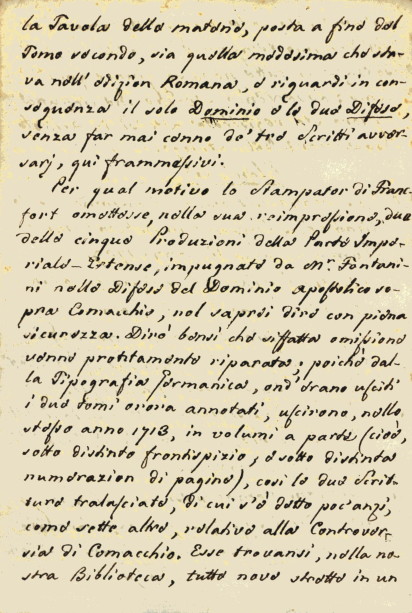 la Tavola delle materie, posta a fine del
Tomo secondo, sia quella medesima che sta-
va nell' edizion Romana, e riguardi in con-
seguenza il solo Dominio e le due Difese,
senza far mai cenno de' tre Scritti avver-
sarj, qui frammessivi.
Per qual motivo lo Stampator di Franc-
fort omettesse, nella sua reimpressione, due
delle cinque Produzioni della Parte Impe-
riale-Estense, impugnate da Mr. Fontani-
ni nelle Difese del Dominio apostolico so-
pra Comacchio, nol saprei dire con piena
sicurezza. Dirò bensì che siffatta omissione
venne prontamente riparata; poichè dal-
la Tipografia Germanica, ond' erano usciti
i due tomi orora annotati, uscirono, nello
stesso anno 1713, in volumi a parte (cioè,
sotto distinto frontispizio, e sotto distinta
numerazion di pagine), così le due Scrit-
ture tralasciate, di cui s'è detto poc'anzi,
come sette altre, relative alla Controver-
sia di Comacchio. Esse trovansi, nella no-
stra Biblioteca, tutte nove strette in un